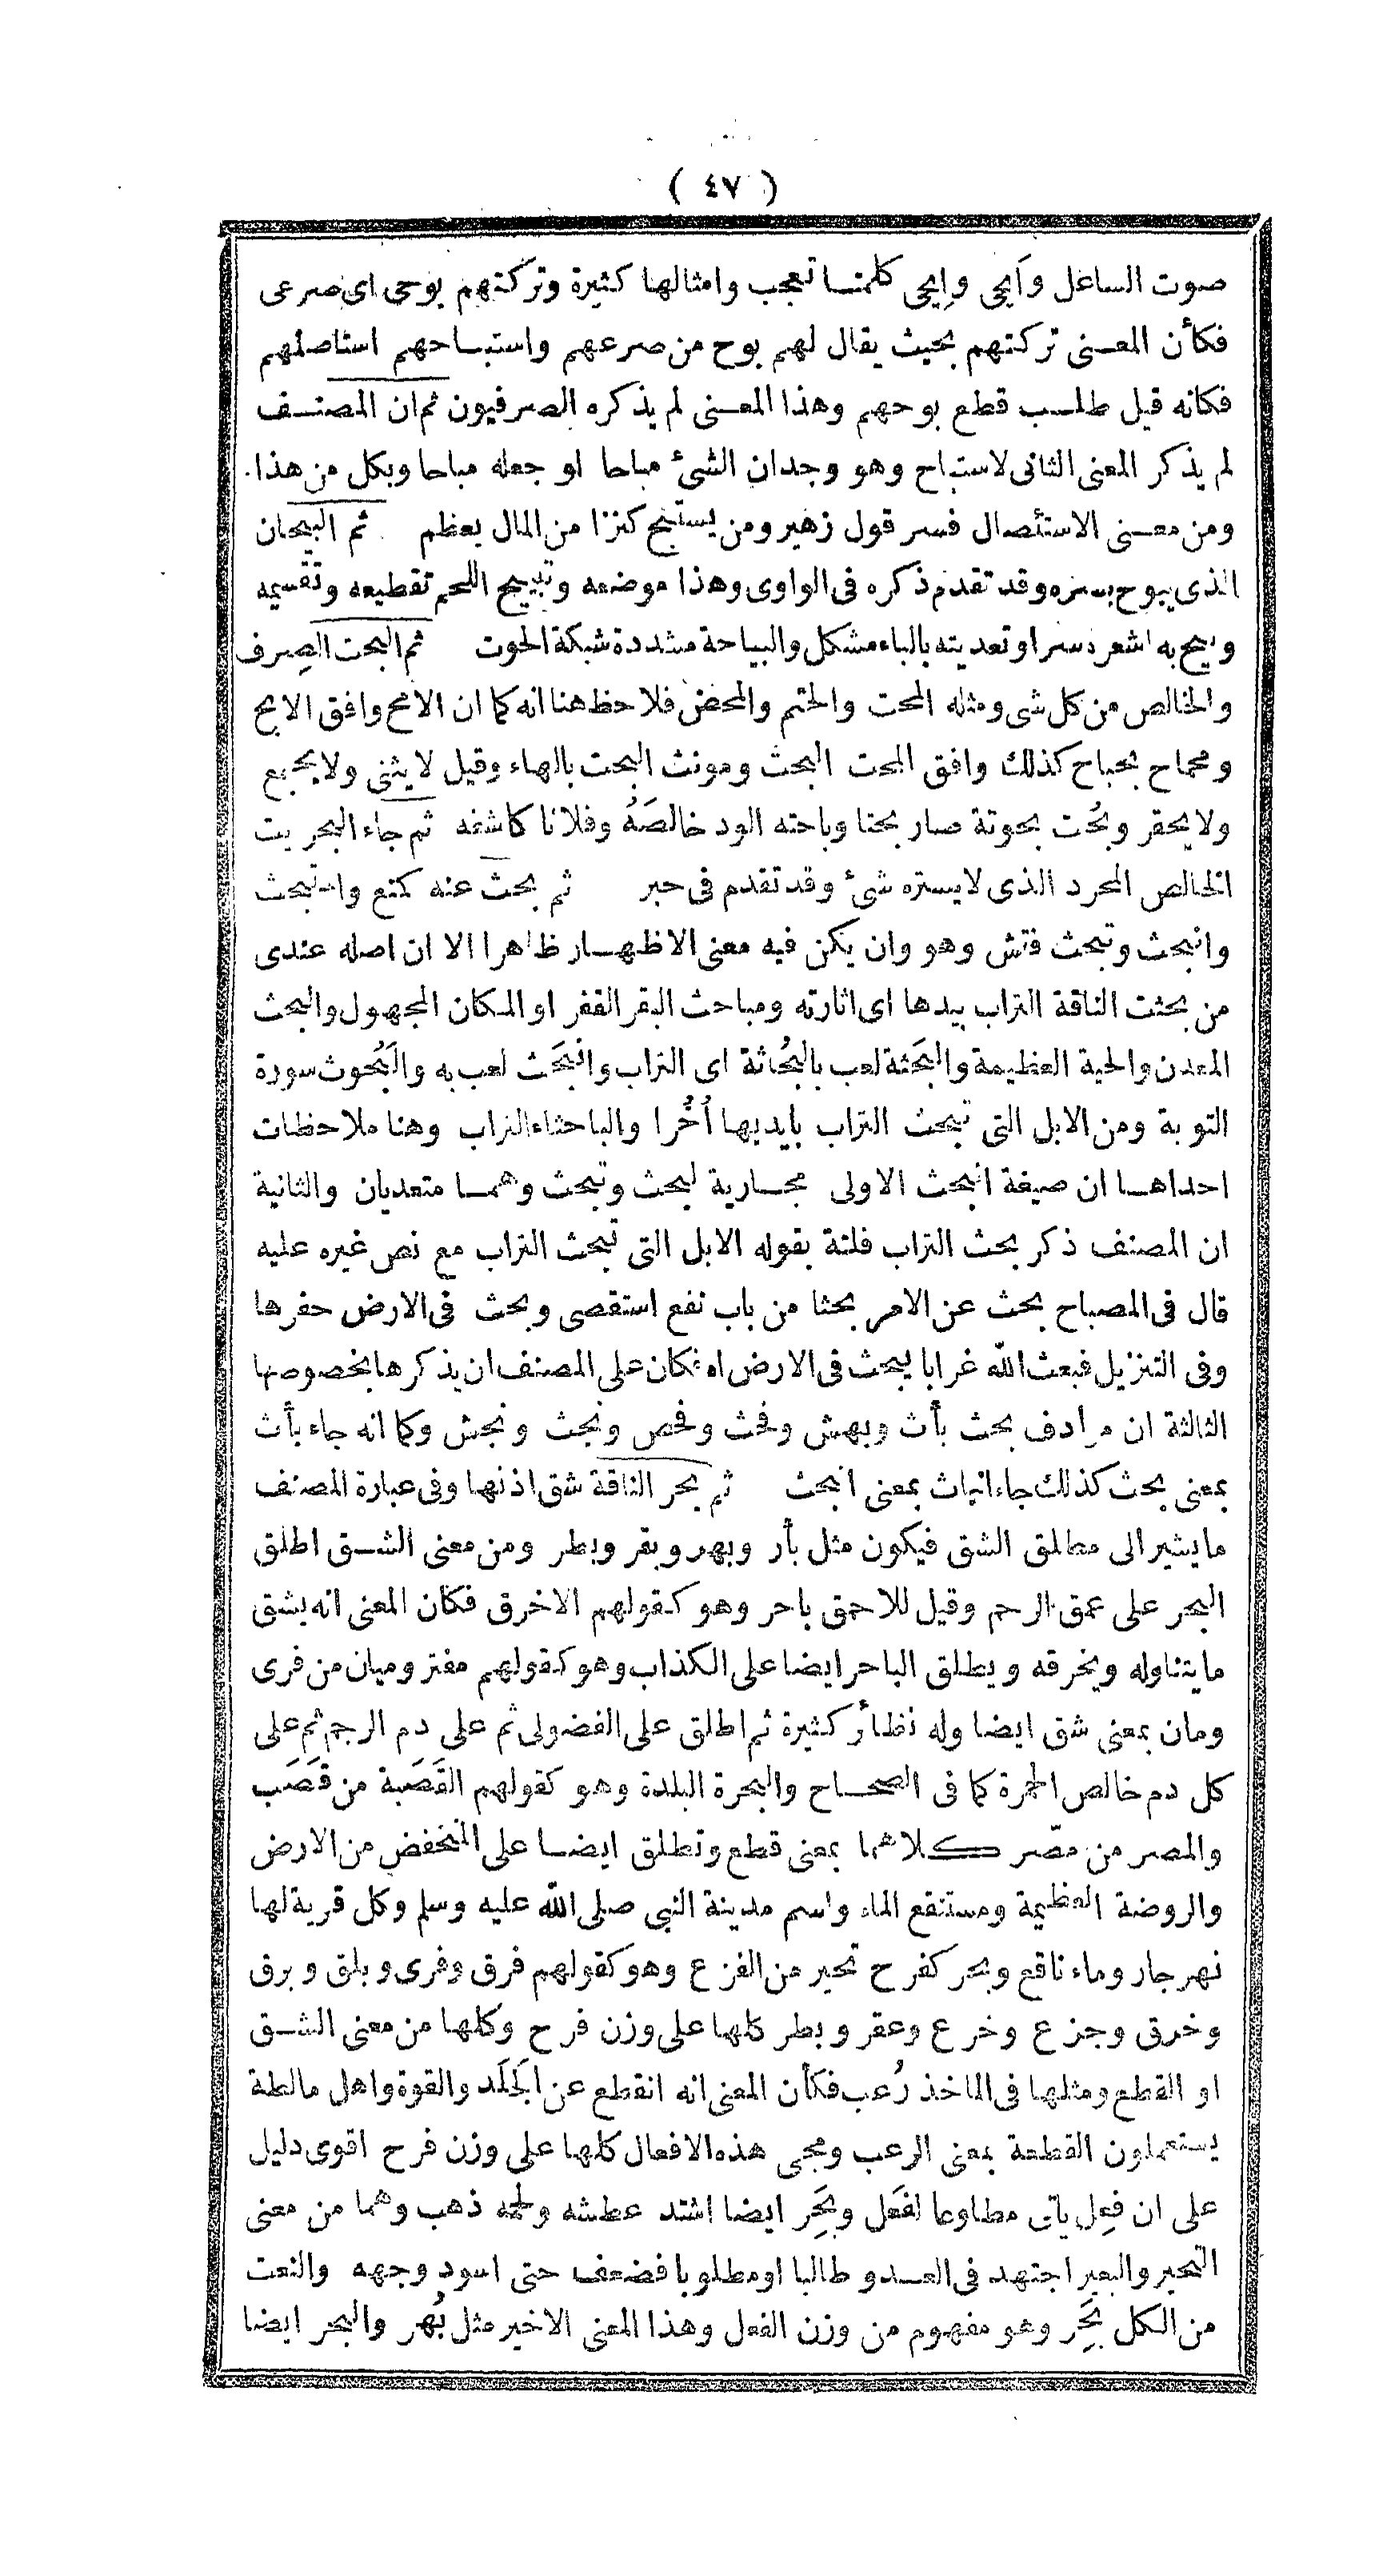 ( ٤٧ )
صوت الساعل وأَيحى وإيحى كلمتـا تعجب وامثالها كثيرة وتركتهم بوحى اى صرعى
فكأن المعـنى تركتهم بحيث يقال لهم بوح من صرعهم واستبـاحهم استاصلهم
فكانه قيل طلـب قطع بوحهم وهذا المعـنى لم يذكره الصرفيون ثم ان المصنـف
لم يذكر المعنى الثانى لاستباح وهو وجدان الشئ مباحا او جعله مباحا وبكل من هذا
ومن معـنى الاستئصال فسر قول زهير ومن يستبح كنزا من المال يعظم ثم البيحان
الذى يبوح بسره وقد تقدم ذكره فى الواوى وهذا موضعه وتبييح اللحم تقطيعه وتقسيمه
وبيح به اشعره سرا وتعديته بالباء مشكل والبياحة مشددة شبكة الحوت ثم البحت الصِرف
والخالص من كل شى ومثله المحت والحتم والمحض فلاحظ هنا انه كما ان الامح وافق الابح
ومحماح بحباح كذلك وافق المحت البحت ومونث البحت بالهاء وقيل لا يثنى ولا يجمع
ولا يحقر وبحُت بحوتة صار بحتا وباحته الود خالصَهُ وفلانا كاشفه ثم جاء البحريت
الخالص المجرد الذى لا يستره شئ وقد تقدم فى حبر ثم بحث عنه كمنع واستبحث
وانبحث وتبحث فتش وهو وان يكن فيه معنى الاظهـار ظاهرا الا ان اصله عندى
من بحثت الناقة التراب بيدها اى اثارته ومباحث البقر القفر او المكان المجهول والبحث
المعدن والحية العظيمة والبَحثة لعب بالبُحاثة اى التراب وانبَحَث لعب به والبَحُوث سورة
التوبة ومن الابل التى تبحث التراب بايديها اُخُرا والباحثاء التراب وهنا ملاحظات
احداهـا ان صيغة انبحث الاولى مجـارية لبحث وتبحث وهمـا متعديان والثانية
ان المصنف ذكر بحث التراب فلتة بقوله الابل التى تبحث التراب مع نص غيره عليه
قال فى المصباح بحث عن الامر بحثا من باب نفع استقصى وبحث فى الارض حفرها
وفى التنزيل فبعث الله غرابا يبحث فى الارض اه فكان على المصنف ان يذكرها بخصوصها
الثالثة ان مرادف بحث بأث وبهش وفحث وفحص ونجث ونجش وكما انه جاء بأث
بمعنى بحث كذلك جاء انباث بمعنى انبحث ثم بحر الناقة شق اذنها وفى عبارة المصنف
ما يشير الى مطلق الشق فيكون مثل بأر وبهر وبقر وبطر ومن معنى الشـق اطلق
البحر على عمق الرحم وقيل للاحمق باحر وهو كقولهم الاخرق فكان المعنى انه يشق
ما يتناوله ويخرقه ويطلق الباحر ايضا على الكذاب وهو كقولهم مفتر وميان من فرى
ومان بمعنى شق ايضا وله نظائر كثيرة ثم اطلق على الفضولى ثم على دم الرحم ثم على
كل دم خالص الحمرة كما فى الصحـاح والبحرة البلدة وهو كقولهم القَصَبة من قَصَب
والمصر من مصّر كـلاهما بمعنى قطع وتطلق ايضـا على المنخفض من الارض
والروضة العظيمة ومستنقع الماء واسم مدينة النبى صلى الله عليه وسلم وكل قرية لها
نهر جار وماء ناقع وبحر كفرح تحير من الفزع وهو كقولهم فرق وفرى وبلق وبرق
وخرق وجزع وخرع وعقر وبطر كلها على وزن فرح وكلها من معنى الشـق
او القطع ومثلها فى الماخذ رُعب فكأن المعنى انه انقطع عن الجَلَد والقوة واهل مالطة
يستعملون القطعة بمعنى الرعب ومجى هذه الافعال كلها على وزن فرح اقوى دليل
على ان فعِل ياتى مطاوعا لفعَل وبَحِر ايضا اشتد عطشه ولحمه ذهب وهما من معنى
التحير والبعير اجتهد فى العـدو طالبا او مطلوبا فضعف حتى اسود وجهه والنعت
من الكل بَحِر وهو مفهوم من وزن الفعل وهذا المعنى الاخير مثل بُهر والبحر ايضا